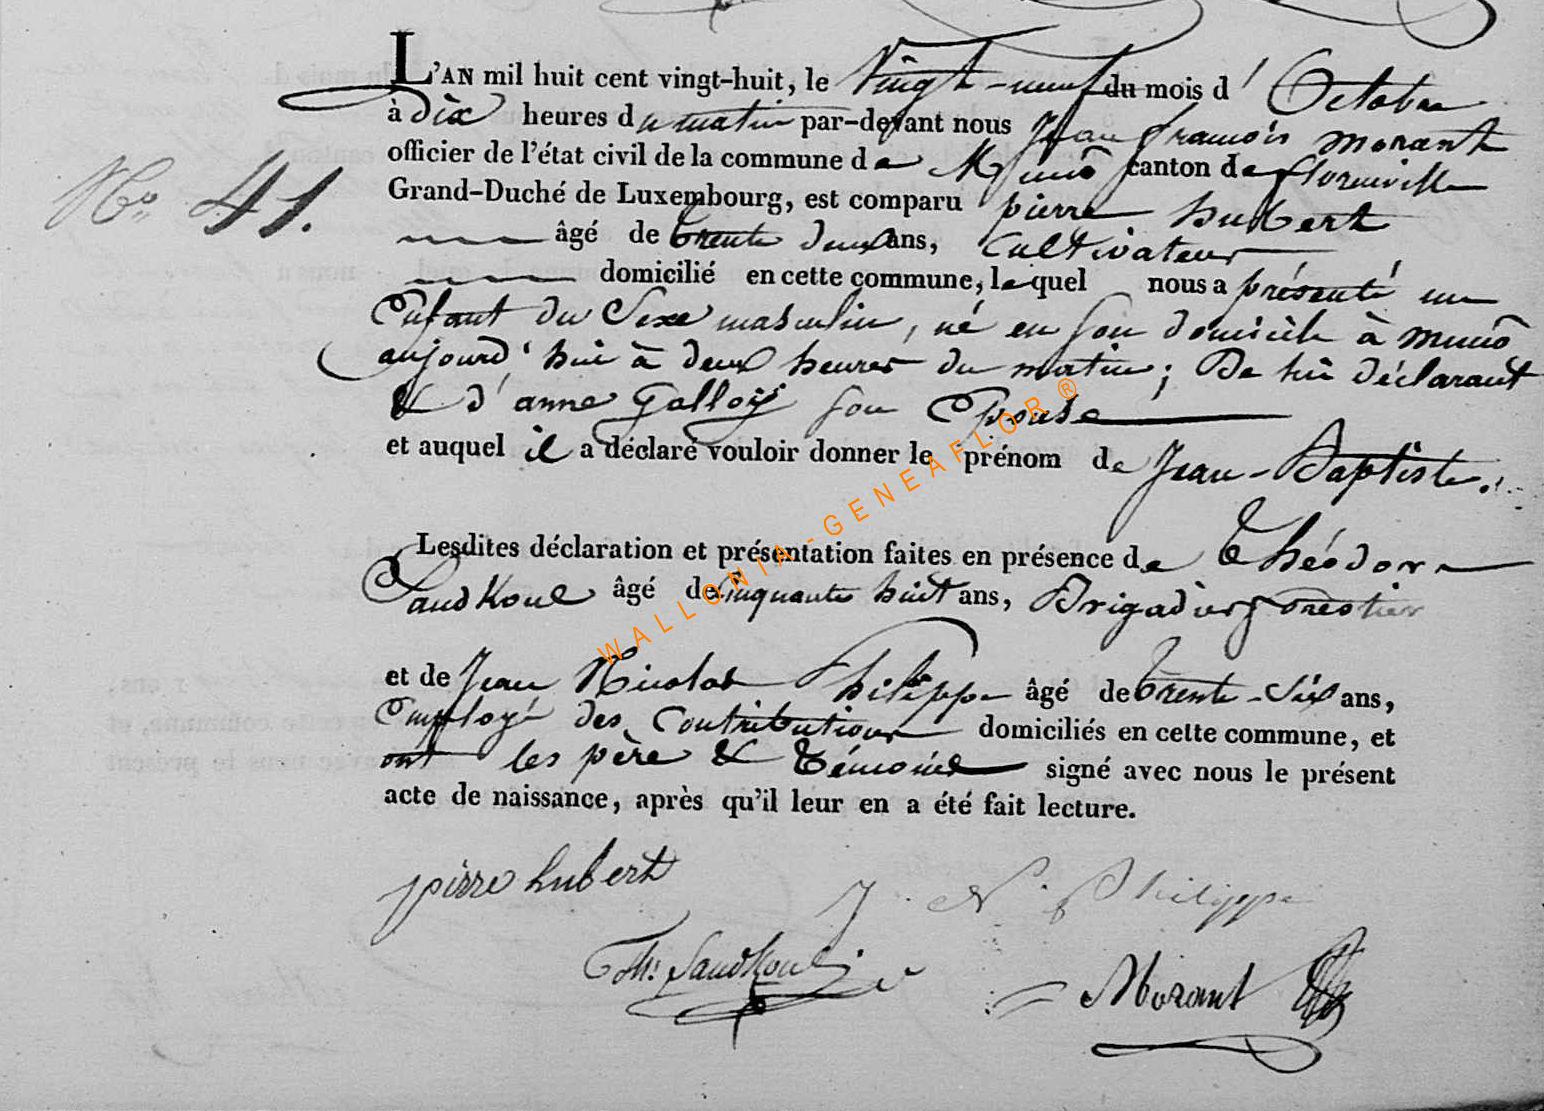 L'AN mil huit cent vingt-huit, le Vingt-neuf du mois d' Octobre
à dix heures du matin par-devant nous Jean françois morant
officier de l'état civil de la commune de Muno canton de florenville
No. 41.
Grand-Duché de Luxembourg, est comparu pierre hubert
âgé de trente deux ans, Cultivateur
domicilié en cette commune, lequel nous a présenté un
Enfant du Sexe masculin, né en son domicile à muno
aujourd'hui à deux heures du matin; De lui déclarant
& d'anne Gallois son Epouse
et auquel il a déclaré vouloir donner le prénom de Jean-Baptiste.
Lesdites déclaration et présentation faites en présence de Théodore
Sandkoul âgé de Cinquante huit ans, Brigadier forestier
et de Jean Nicolas Philippe âgé de trente-six ans,
Employé des Contributions domiciliés en cette commune, et
ont les père & témoins signé avec nous le présent
acte de naissance, après qu'il leur en a été fait lecture.
pierre hubert
J. N. Philippe
Th: Sandkoul
Morant
WALLONIA-GENEAFLOR®